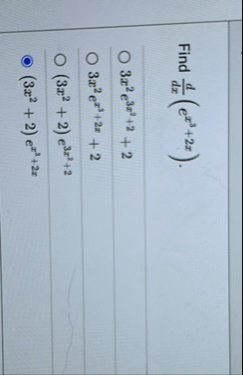 Find d/dx (e^{x^3+2x}).
3x^2 e^{3x^2+2} + 2
3x^2 e^{x^3+2x} + 2
(3x^2 + 2) e^{3x^2+2}
(3x^2 + 2) e^{x^3+2x}